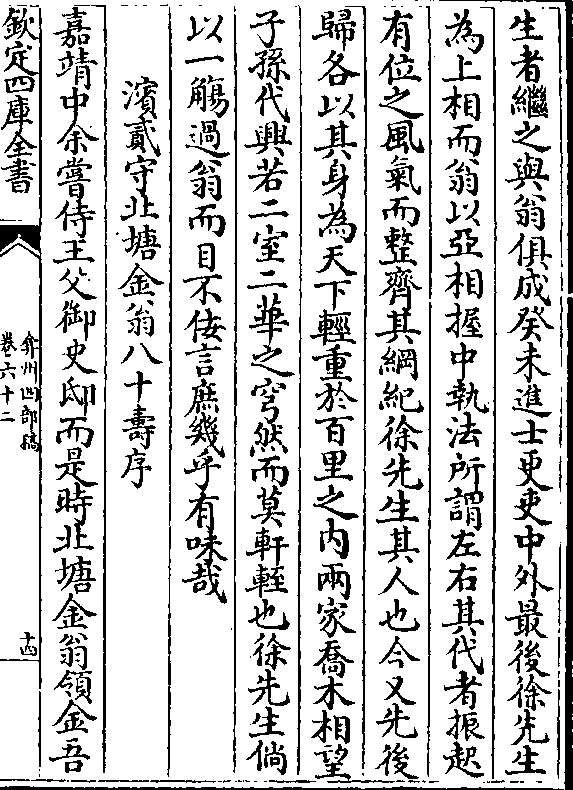 生者繼之與翁俱成癸未進士更吏中外最後徐先生
為上相而翁以亞相握中執法所謂左右其代者振起
有位之風氣而整齊其綱紀徐先生其人也今又先後
歸各以其身為天下輕重於百里之内兩家喬木相望
子孫代興若二室二華之穹然而莫軒輊也徐先生倘
以一觴過翁而目不佞言庶幾乎有味哉
濱貳守北塘金翁八十壽序
嘉靖中余嘗侍王父御史邸而是時北塘金翁領金吾
欽定四庫全書
弇州四部稿
卷六十二
十四